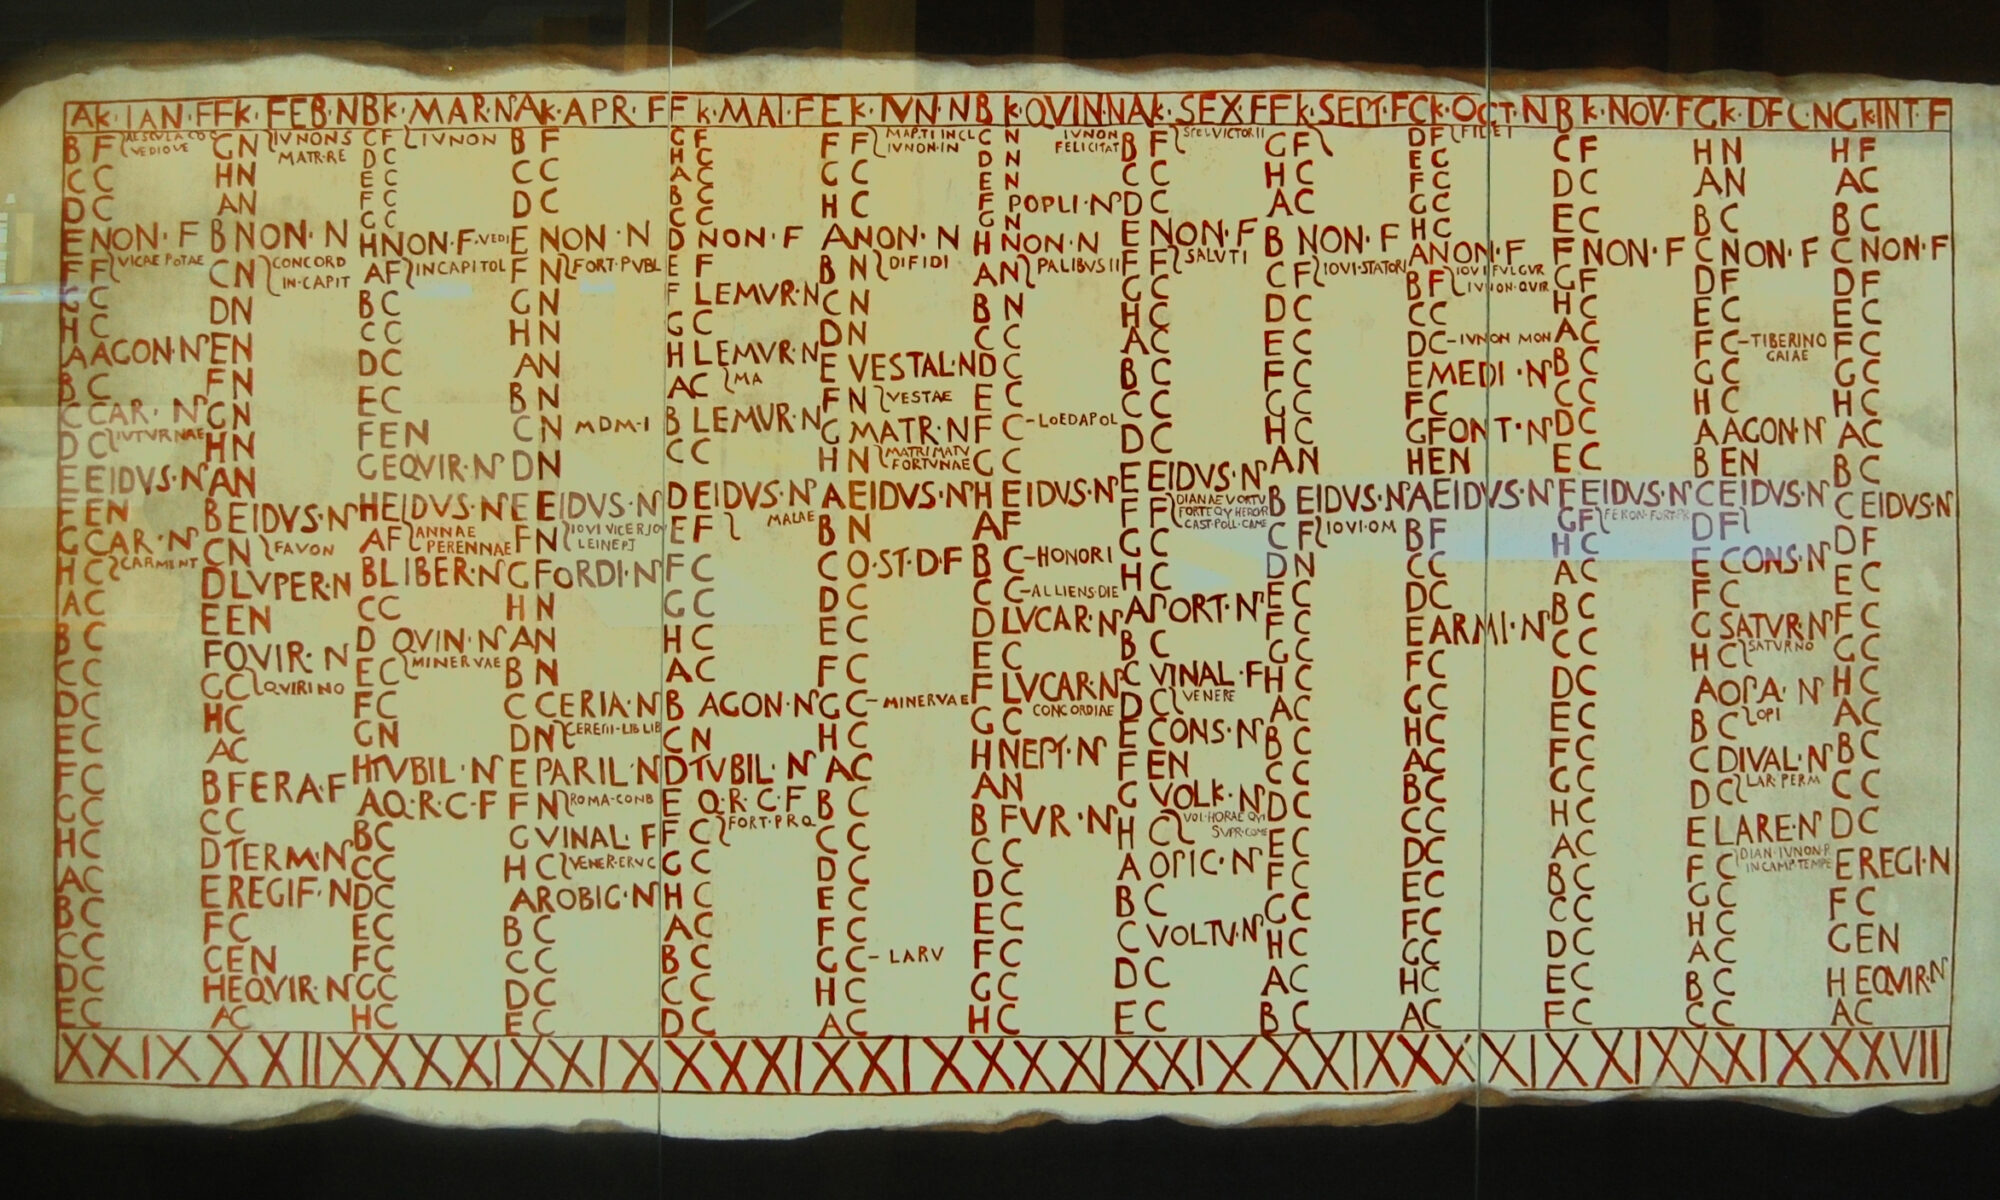 AK·IAN·F FK·FEB·N BK·MAR·NP AK·APR·F FK·MAI·F EK·IVN·N BK·QVIN·N AK·SEX·F FK·SEPT·F CK·OCT·N BK·NOV·F GK·DEC·N GK·INT·F
B F
VEDIOVE
C C
D C
E NON·F
VICAE POTAE
F F
G C
H C
A AGON·NP
B C
C CAR·NP
D C IVTVRNAE
E EIDVS·NP
F EN
G CAR·NP
H C CARMENT
A C
B C
C C
D C
E C
F C
G C
H C
A C
B C
C C
D C
E C
G N IVNONS
MATR·RE
H N
A N
B NON·N
C N CONCORD
IN·CAPIT
D N
E N
F N
G N
H N
A N
B EIDVS·NP
C N FAVON
D LVPER·N
E EN
F QVIR·N
G C QVIRINO
H C
A C
B FERA·F
C C
D TERM·NP
E REGIF·N
F C
G EN
H EQVIR·N
A C
C F IVNON
D C
E C
F C
G C
H NON·F VEDI
A F INCAPITOL
B C
C C
D C
E C
F EN
G EQVIR·NP
H EIDVS·NP
A F ANNAE
PERENNAE
B LIBER·N
C C
D QVIN·NP
E C MINERVAE
F C
G N
H TVBIL·NP
A Q·R·C·F
B C
C C
D C
E C
F C
G C
H C
B F
C C
D C
E NON·N
F N FORT·PVBL
G N
H N
A N
B N
C N MDM·I
D N
E EIDVS·NP
F N IOVI VICE
G FORDI·NP
H N
A N
B N
C CERIA·N
D N
E PARIL·N
F N ROMA·CON
G VINAL·F
H C VENER·ERVC
A ROBIG·N
B C
C C
D C
E C
G F
H C
A C
B C
C C
D NON·F
E F
F LEMVR·N
G C
H LEMVR·N
A C MA
B LEMVR·N
C C
D EIDVS·NP
E F MAIAE
F C
G C
H C
A C
B AGON·NP
C N
D TVBIL·NP
E Q·R·C·F
F C FORT·PRQ
G C
H C
A C
B C
C C
D C
F F
IVNON·IN
G C
H C
A NON·N
B N DIFIDI
C N
D N
E VESTAL·N
F N VESTAE
G MATR·N
H N MATRI MATV
FORTVNAE
A EIDVS·NP
B N
C Q·ST·D·F
D C
E C
F C
G C MINERVAE
H C
A C
B C
C C
D C
E C
F C
G C LARV
H C
A C
C N IVNON
FELICITAT
D N
E N
F POPLI·NP
G N
H NON·N
A N PALIBVS II
B N
C C
D C
E C
F C LOEDAPOL
G C
H EIDVS·NP
A F
B C HONORI
C C ALLIENS·DIE
D LVCAR·NP
E C
F LVCAR·NP
G C CONCORDIAE
H NEPT·NP
A N
B FVR·NP
C C
D C
E C
F C
G C
H C
B F
C C
D C
E NON·F
F F SALVTI
G C
H C
A C
B C
C C
D C
E EIDVS·NP
F F DIANAE VORTV
CAST·POLL·CAME
G C
H C
A PORT·NP
B C
C VINAL·F
D C VENERE
E CONS·NP
F EN
G VOLK·NP
H C
A OPIC·NP
B C
C VOLTV·NP
D C
E C
G F
H C
A C
B NON·F
C F IOVI·STATORI
D C
E C
F C
G C
H C
A N
B EIDVS·NP
C F IOVI·OM
D N
E C
F C
G C
H C
A C
B C
C C
D C
E C
F C
G C
H C
A C
B C
D F FIDEI
E C
F C
G C
H C
A NON·F
B F IOVI FVLGVR
IVNON·QVIR
C C
D C IVNON MON
E MEDI·NP
F C
G FONT·NP
H EN
A EIDVS·NP
B F
C C
D C
E ARMI·NP
F C
G C
H C
A C
B C
C C
D C
E C
F C
G C
H C
A C
C F
D C
E C
F NON·F
G F
H C
A C
B C
C C
D C
E C
F EIDVS·NP
G F
H C
A C
B C
C C
D C
E C
F C
G C
H C
A C
B C
C C
D C
E C
F C
H N
A N
B C
C NON·F
D F
E C
F C TIBERINO
GAIAE
G C
H C
A AGON·NP
B EN
C EIDVS·NP
D F
E CONS·NP
F C
G SATVR·NP
H C SATVRNO
A OPA·NP
B C OPI
C DIVAL·NP
D C LAR·PERM
E LARE·NP
F C DIAN·IVNON·R
IN CAMP·TEMPE
G C
H C
A C
B C
C C
H F
A C
B C
C NON·F
D F
E C
F C
G C
H C
A C
B C
C EIDVS·NP
D F
E C
F C
G C
H C
A C
B C
C C
D C
E REGI·N
F C
G EN
H EQVIR·NP
A C
XXIX XXIIX XXXI XXIX XXXI XXIX XXXI XXIX XXIX XXXI XXIX XXIX XXVII